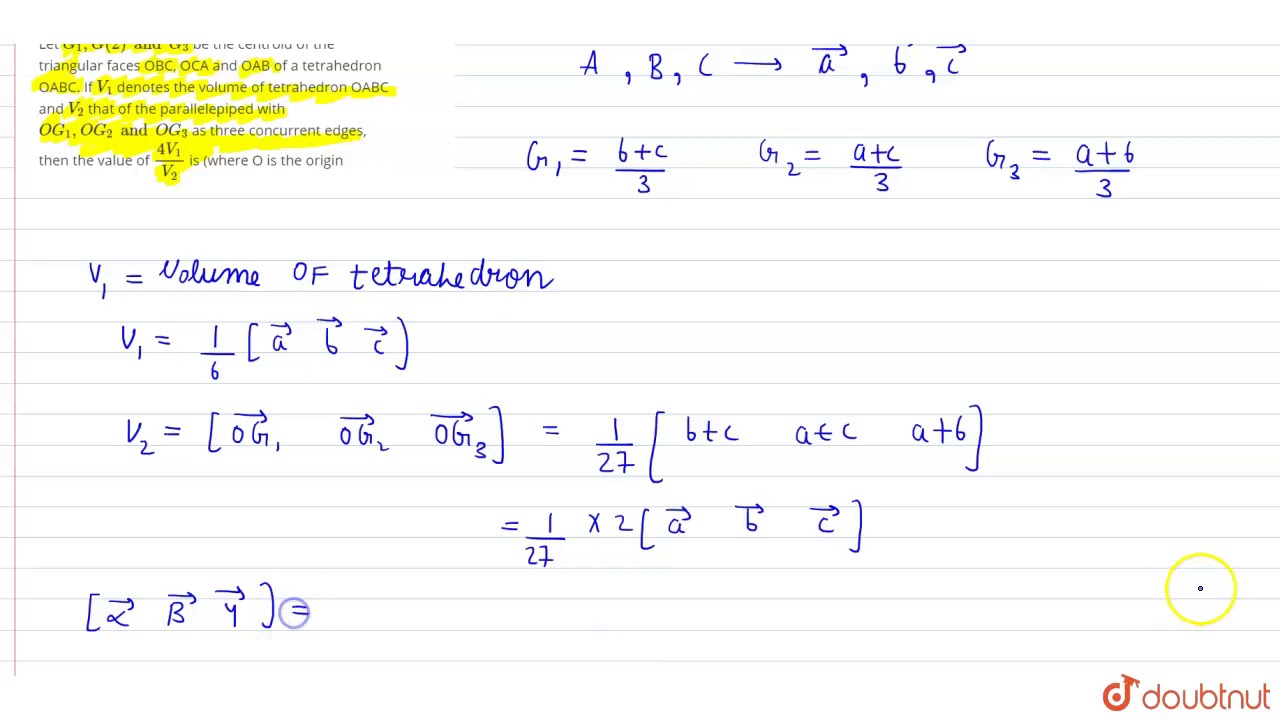 Let G₁, G(2) and G₃ be the centroid of the
triangular faces OBC, OCA and OAB of a tetrahedron
OABC. If V₁ denotes the volume of tetrahedron OABC
and V₂ that of the parallelepiped with
OG₁, OG₂ and OG₃ as three concurrent edges,
then the value of 4V₁/V₂ is (where O is the origin
A, B, C → a⃗, b⃗, c⃗
G₁ = (b+c)/3 G₂ = (a+c)/3 G₃ = (a+b)/3
V₁ = Volume OF tetrahedron
V₁ = 1/6 [a⃗ b⃗ c⃗]
V₂ = [OG₁⃗ OG₂⃗ OG₃⃗] = 1/27 [b+c a+c a+b]
= 1/27 × 2 [a⃗ b⃗ c⃗]
[α⃗ β⃗ γ⃗] =
doubtnut